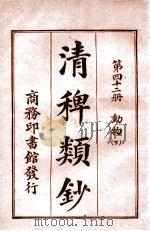 第四十二册
動物(下)
清稗類鈔
商務印書館發行